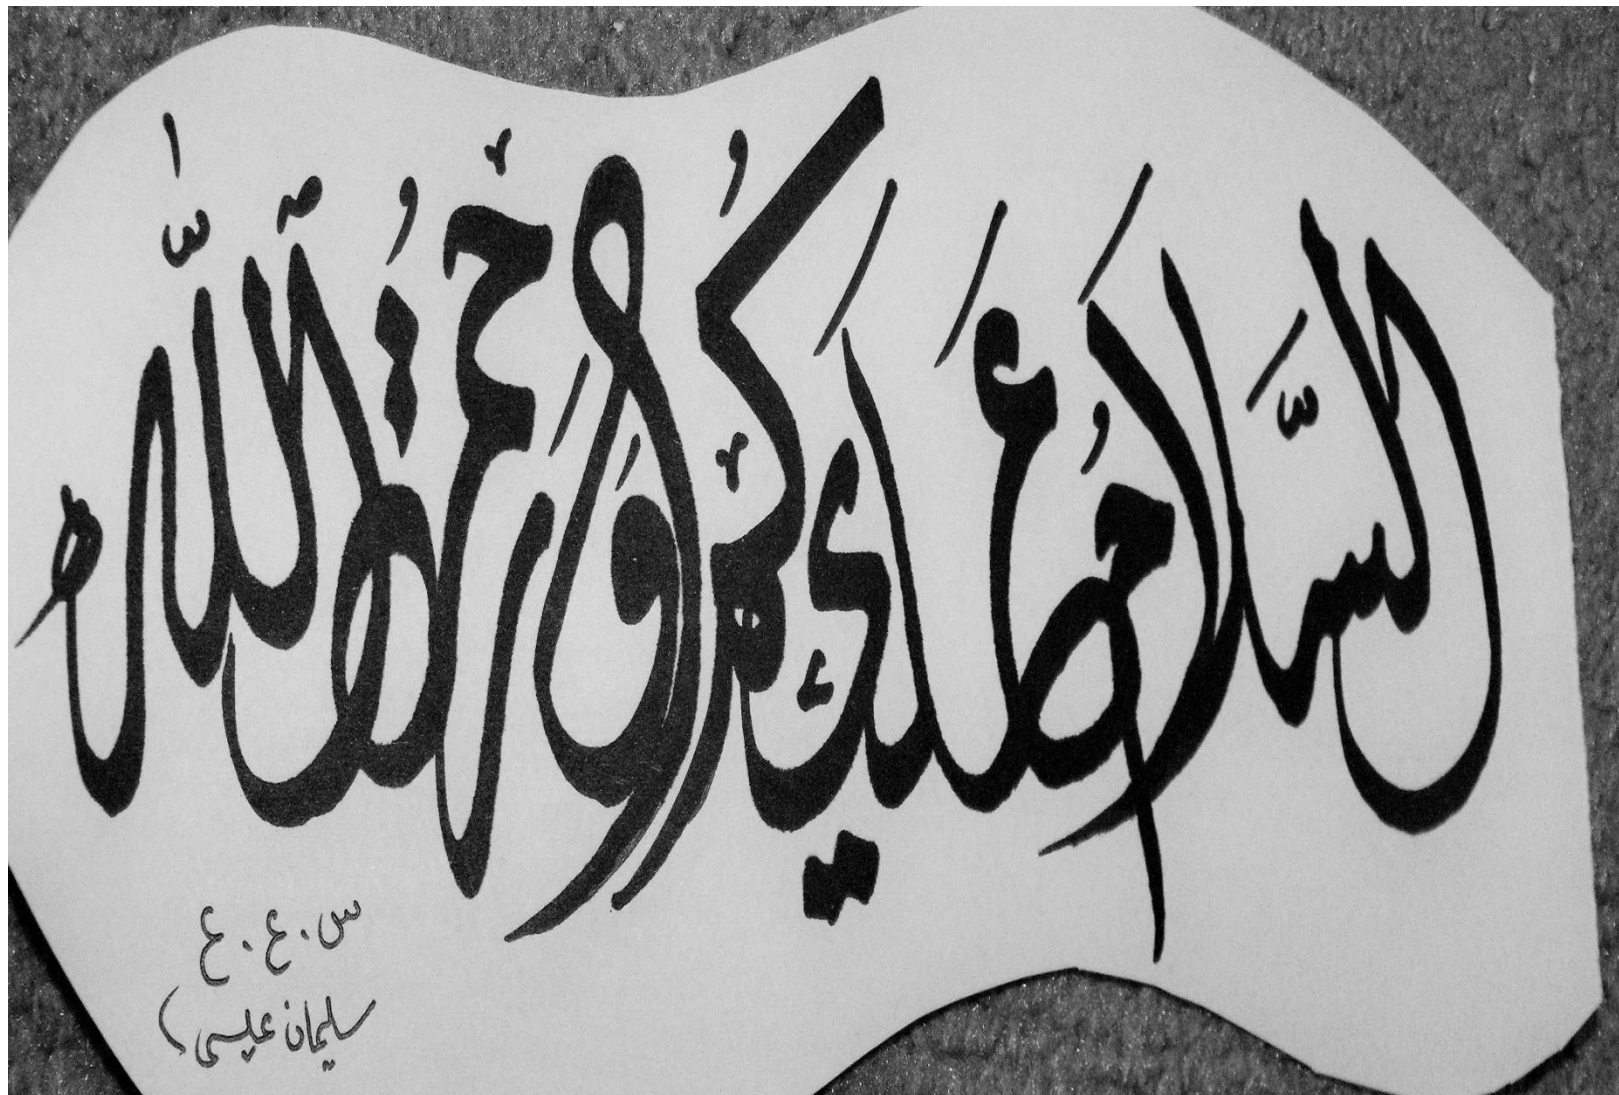 السَّلَامُ عَلَيْكُمْ وَرَحْمَةُ اللّٰه
س.ع.ع
سليمان عيسى